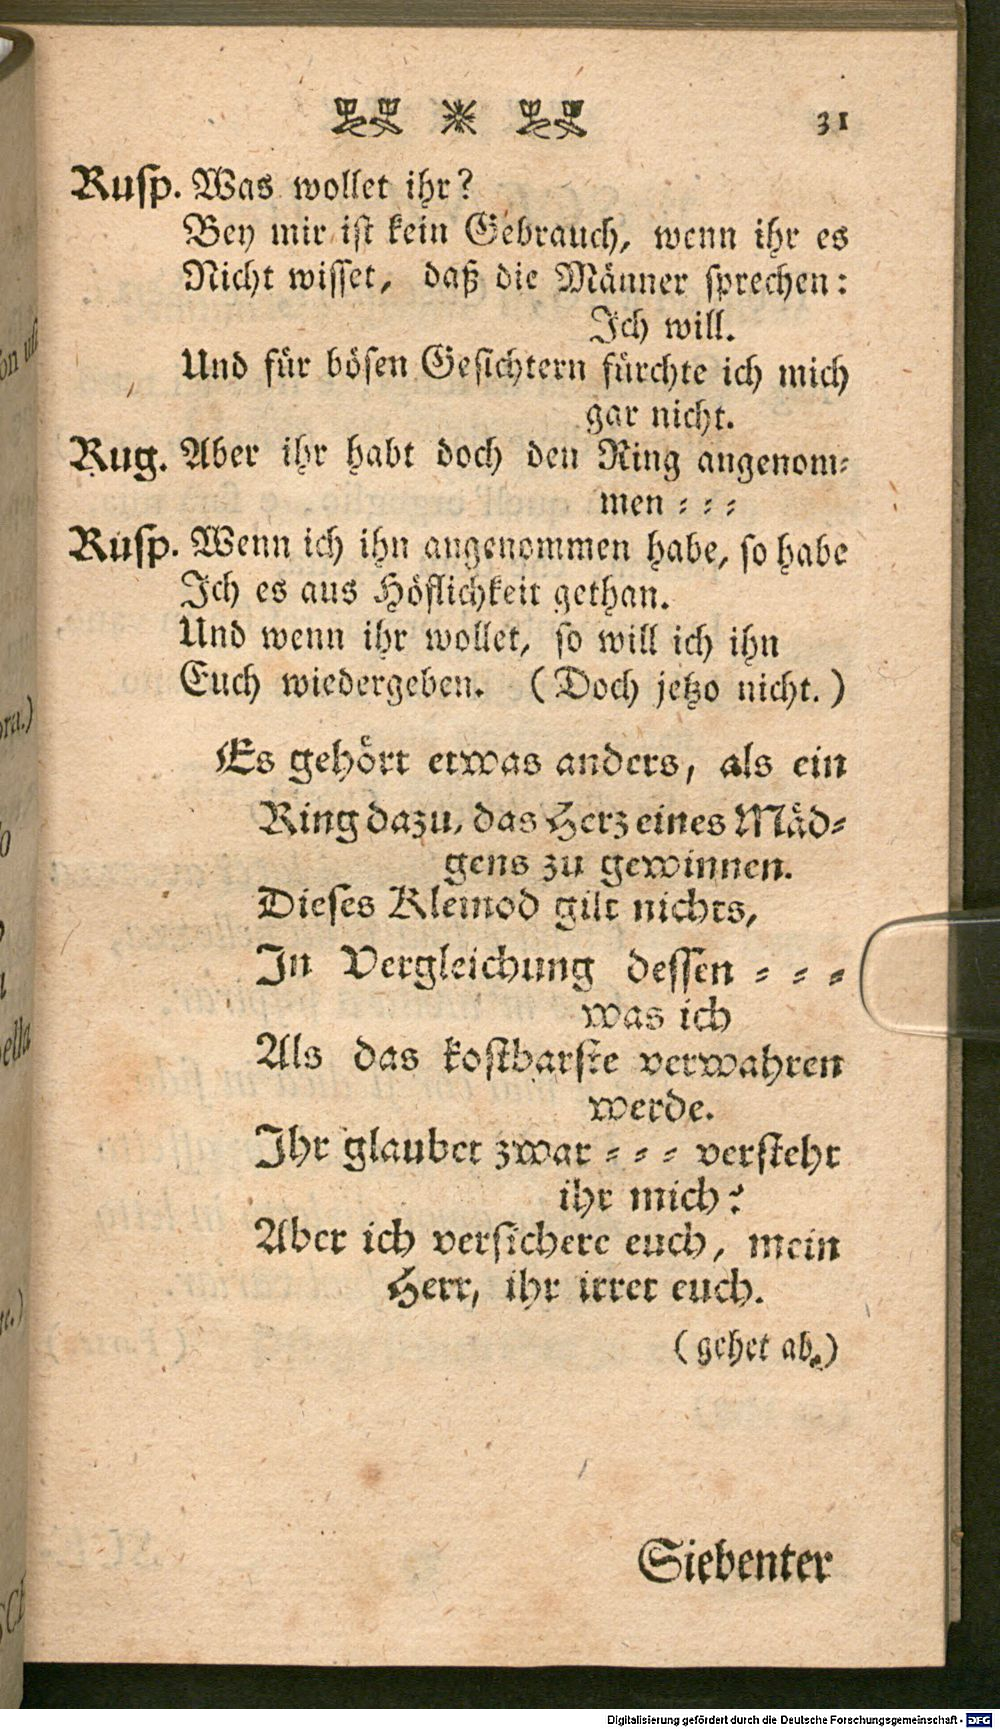 31
Rusp. Was wollet ihr?
Bey mir ist kein Gebrauch, wenn ihr es
Nicht wisset, daß die Männer sprechen:
Ich will.
Und für bösen Gesichtern fürchte ich mich
gar nicht.
Rug. Aber ihr habt doch den Ring angenom⸗
men ⸗ ⸗ ⸗
Rusp. Wenn ich ihn angenommen habe, so habe
Ich es aus Höflichkeit gethan.
Und wenn ihr wollet, so will ich ihn
Euch wiedergeben. (Doch jetzo nicht.)
Es gehört etwas anders, als ein
Ring dazu, das Herz eines Mäd⸗
gens zu gewinnen.
Dieses Kleinod gilt nichts,
In Vergleichung dessen ⸗ ⸗ ⸗
was ich
Als das kostbarste verwahren
werde.
Ihr glaubet zwar ⸗ ⸗ ⸗ versteht
ihr mich?
Aber ich versichere euch, mein
Herr, ihr irret euch.
(gehet ab.)
Siebenter
Digitalisierung gefördert durch die Deutsche Forschungsgemeinschaft - DFG